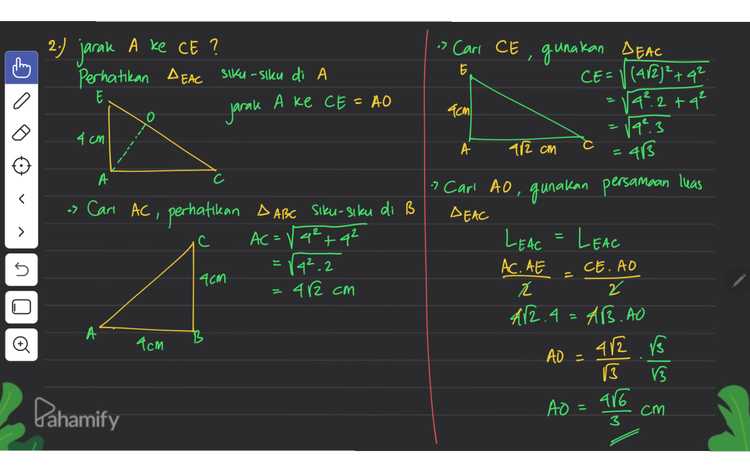 2.) jarak A ke CE ?
Perhatikan △EAC siku-siku di A
E
O
jarak A ke CE = AO
4 cm
A
C
.> Cari AC, perhatikan △ABC siku-siku di B
C
AC = √4² + 4²
= √4².2
= 4√2 cm
4cm
A
B
4cm
Pahamify
.> Cari CE, gunakan △EAC
E
CE = √(4√2)² + 4²
= √4².2 + 4²
= √4².3
= 4√3
4cm
A
4√2 cm
C
.> Cari AO, gunakan persamaan luas
△EAC
LEAC = LEAC
AC.AE / 2 = CE.AO / 2
4√2.4 = 4√3.AO
AO = 4√2 / √3 . √3 / √3
AO = 4√6 / 3 cm